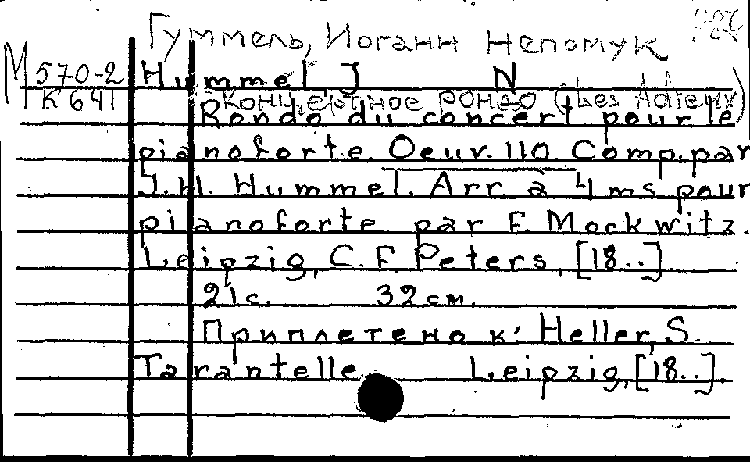 Гуммель, Иоганн Непомук
М 570-2
К 641
Hummel J N
Концертное рондо (Les Adieux)
Rondo du concert pour le
pianoforte. Oeuv. 110 Comp. par
J. N. Hummel. Arr. à 4 ms pour
pianoforte par F. Mockwitz.
Leipzig, C. F. Peters, [18..]
21 с. 32 см.
Приплетено к: Heller, S.
Tarantelle Leipzig, [18..].